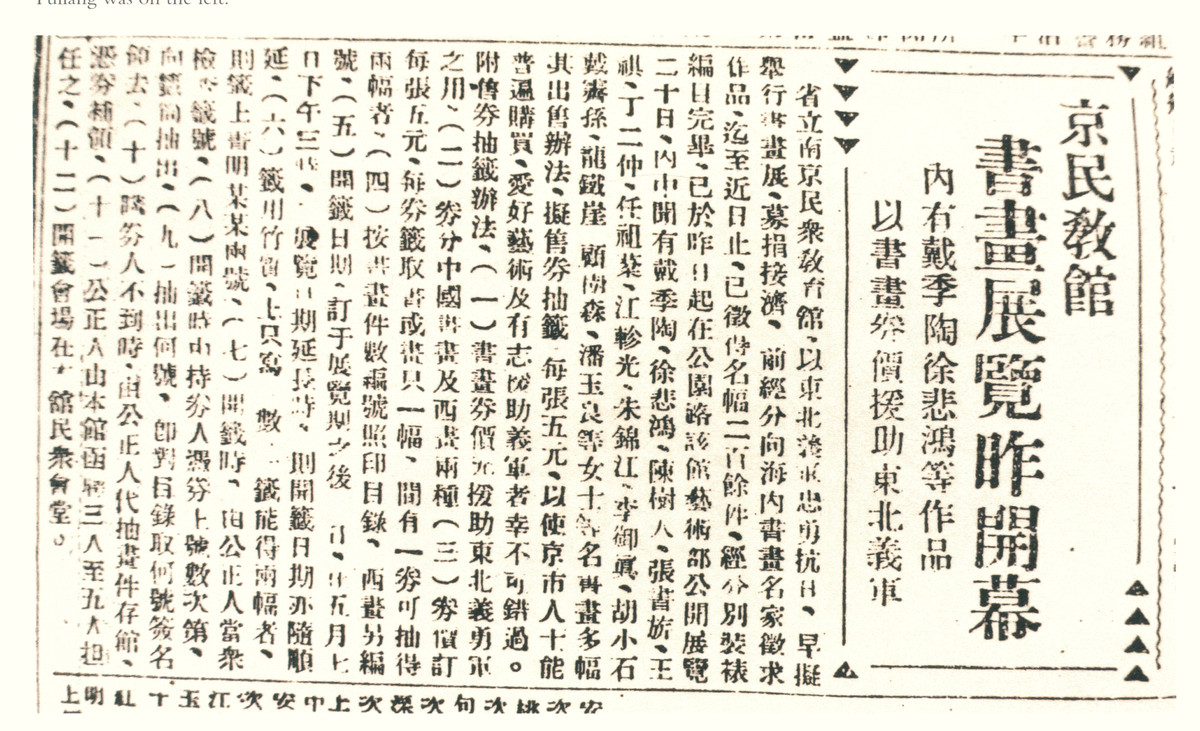 was on the left.
京民敎館
書畫展覽昨開幕
內有戴季陶徐悲鴻等作品
以書畫券價援助東北義軍
省立南京民衆敎育館、以東北義軍忠勇抗日、早擬
舉行書畫展、募捐接濟、前經分向海內書畫名家徵求
作品、迄至近日止、已徵得名幅二百餘件、經分別裝裱
編目完畢、已於昨日起在公園路該館藝術部公開展覽
二十日、內中聞有戴季陶、徐悲鴻、陳樹人、張書旂、王
祺、丁二仲、任祖棻、江軫光、朱錦江、李御眞、胡小石
戴壽孫、龍鐵崖、顧樹森、潘玉良等女士等名書畫多幅
其出售辦法、擬售券抽籤、每張五元、以使京市人士能
普遍購買、愛好藝術及有志援助義軍者幸不可錯過。
附售券抽籤辦法、（一）書畫券價充援助東北義勇軍
之用、（二）券分中國書畫及西畫兩種（三）券價訂
每張五元、每券籤取書或畫只一幅、間有一券可抽得
兩幅者、（四）按書畫件數編號照印目錄、西畫另編
號、（五）開籤日期、訂于展覽期之後 日、五月七
日下午三時、展覽日期延長時、則開籤日期亦隨順
延、（六）籤用竹 、上只寫 數一籤能得兩幅者、
則籤上書明某某兩號、（七）開籤時、由公正人當衆
檢查籤號、（八）開籤時由持券人憑券上號數次第、
向籤筒抽出、（九）抽出何號、卽對目錄取何號簽名
領去、（十）購券人不到時、由公正人代抽畫件存館、
憑券補領、（十一）公正人由本館函聘三人至五人担
任之、（十二）開籤會場在本館民衆會堂。